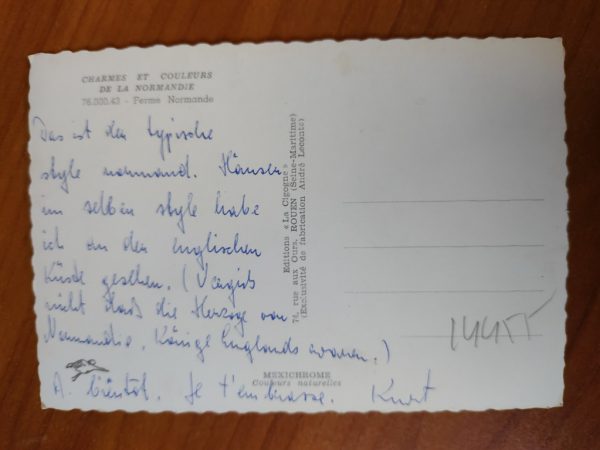 CHARMES ET COULEURS
DE LA NORMANDIE
76.000.43 - Ferme Normande
Das ist der typische
style normand. Häuser
im selben style habe
ich an der englischen
Küste gesehen. (Vergiß
nicht daß die Herzoge von
Normandie, Könige Englands waren.)
A bientôt. Je t'embrasse. Kurt
Editions «La Cigogne»
74, rue aux Ours, ROUEN (Seine-Maritime)
(Exclusivité de fabrication André Leconte)
MEXICHROME
Couleurs naturelles